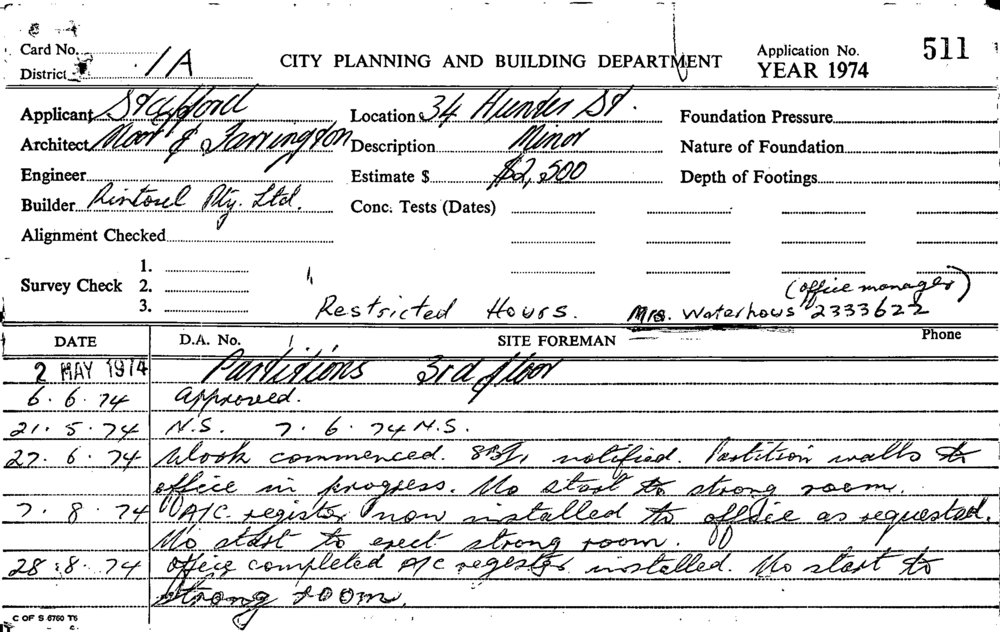 Card No. CITY PLANNING AND BUILDING DEPARTMENT Application No. 511
District 1A YEAR 1974
Applicant Stafford Location 34 Hunter St. Foundation Pressure
Architect Moor & Farrington Description Minor Nature of Foundation
Engineer Estimate $ $2,500 Depth of Footings
Builder Rintoul Pty. Ltd. Conc. Tests (Dates)
Alignment Checked
1.
Survey Check 2. (office manager)
3. Restricted Hours. Mrs. Waterhows 2333622
DATE D.A. No. SITE FOREMAN Phone
2 MAY 1974 Partitions 3rd floor
6.6.74 Approved.
21.5.74 N.S. 7.6.74 N.S.
27.6.74 Work commenced. notified. Partition walls to
office in progress. No start to strong room.
7.8.74 A/C. register now installed to office as requested.
No start to erect strong room.
28.8.74 office completed A/C register installed. No start to
strong room.
C OF S 6760 T6